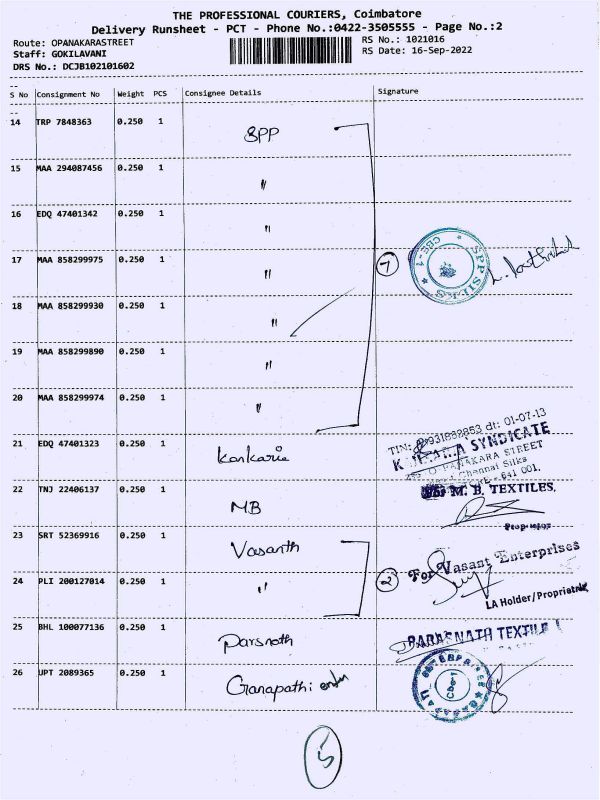 THE PROFESSIONAL COURIERS, Coimbatore
Delivery Runsheet - PCT - Phone No.:0422-3505555 - Page No.:2
Route: OPANAKARASTREET
Staff: GOKILAVANI
DRS No.: DCJB102101602
RS No.: 1021016
RS Date: 16-Sep-2022
S No Consignment No Weight PCS Consignee Details Signature
14 TRP 7848363 0.250 1 SPP
15 MAA 294087456 0.250 1 "
16 EDQ 47401342 0.250 1 "
17 MAA 858299975 0.250 1 " 7 SPP SILKS CBE-1
18 MAA 858299930 0.250 1 "
19 MAA 858299890 0.250 1 "
20 MAA 858299974 0.250 1 "
TIN: 931888853 dt: 01-07-13
21 EDQ 47401323 0.250 1 Kankaria
SYNDICATE
STREET
Chennai Silks
641 001.
22 TNJ 22406137 0.250 1 M.B
M. B. TEXTILES.
Proprietor
23 SRT 52369916 0.250 1 Vasanth
24 PLI 200127014 0.250 1 " 2 For Vasant Enterprises
LA Holder/Proprietrix
25 BHL 100077136 0.250 1 Parsnath
PARASNATH TEXTILE
26 UPT 2089365 0.250 1 Ganapathi
5